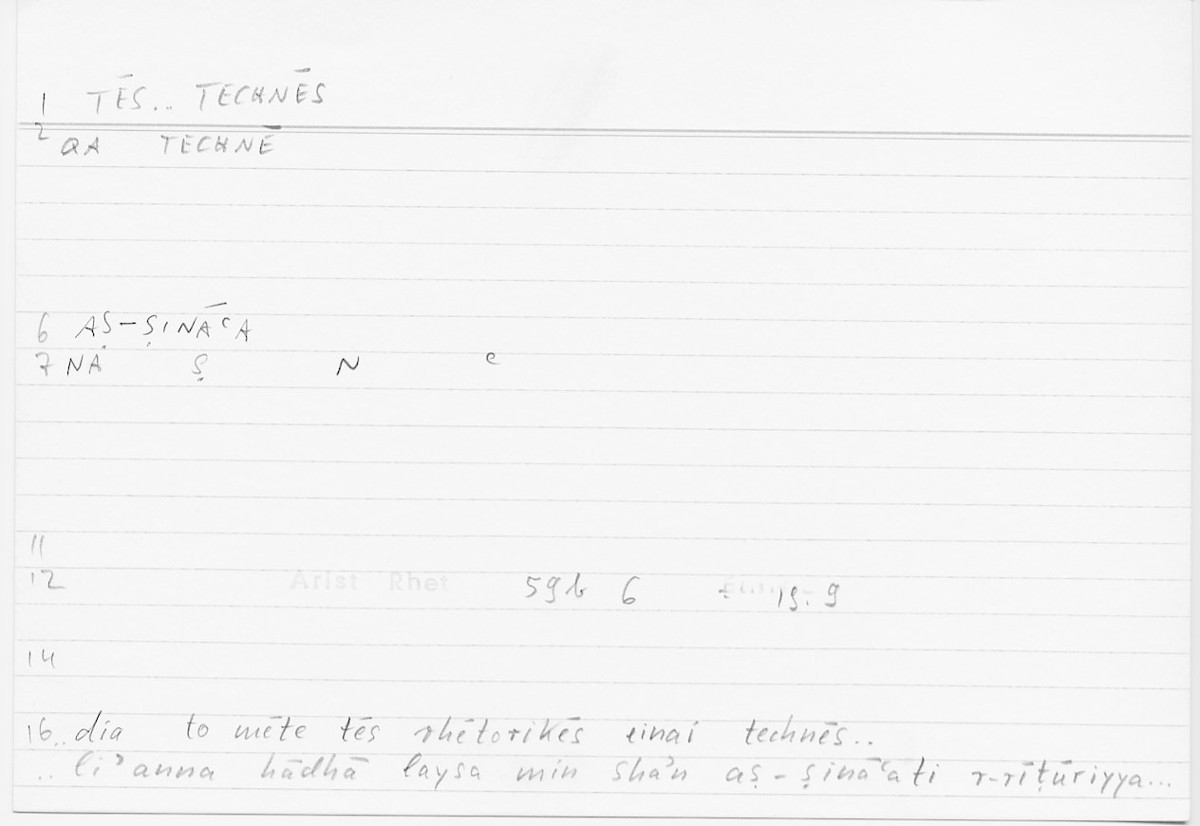 1 TĒS.. TECHNĒS
2 QA TECHNĒ
6 AṢ-ṢINĀʿA
7 NA Ṣ N ʿ
11
12 Arist Rhet 59b 6 19.9
14
16 ..dia to mēte tēs rhētorikēs einai technēs..
..liʾanna hādhā laysa min shaʾn aṣ-ṣināʿati r-rīṭūriyya...